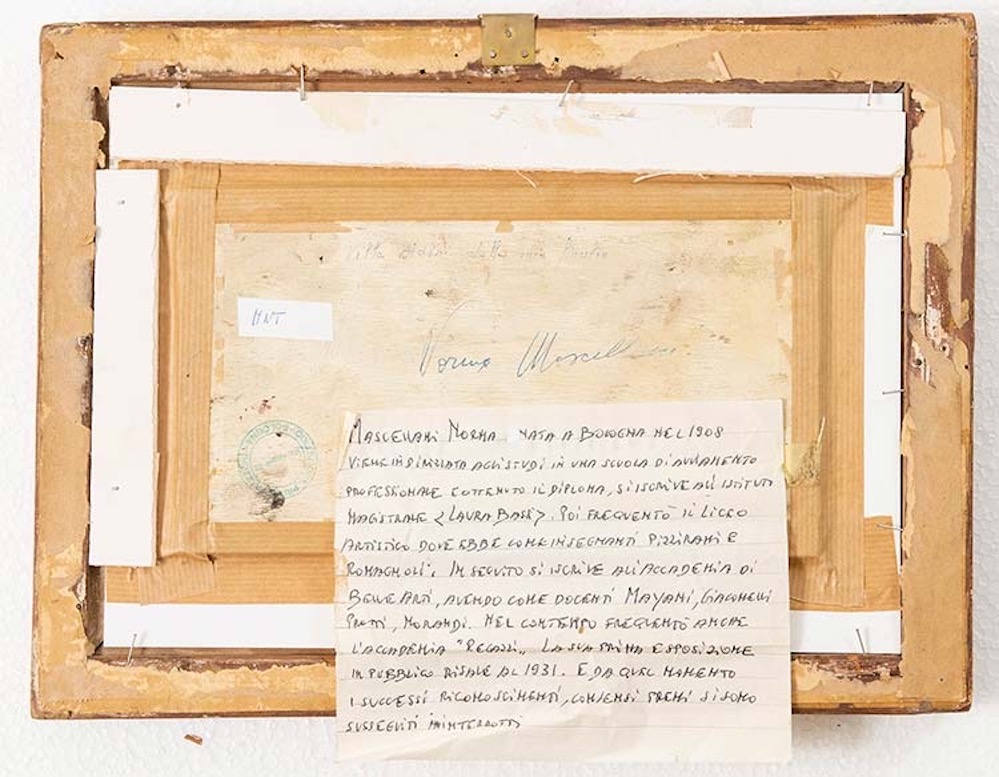 Villa
MNT
Norma Mascellani
MASCELLANI NORMA NATA A BOLOGNA NEL 1908
VIENE INDIRIZZATA AGLI STUDI IN UNA SCUOLA DI AVVIAMENTO
PROFESSIONALE E OTTENUTO IL DIPLOMA, SI ISCRIVE ALL'ISTITUTO
MAGISTRALE <LAURA BASSI>. POI FREQUENTÒ IL LICEO
ARTISTICO DOVE EBBE COME INSEGNANTI PIZZIRANI E
ROMAGNOLI. IN SEGUITO SI ISCRIVE ALL'ACCADEMIA DI
BELLE ARTI, AVENDO COME DOCENTI MAYANI, GIACOMELLI
PROTTI, MORANDI. NEL CONTEMPO FREQUENTÒ ANCHE
L'ACCADEMIA "REGAZZI". LA SUA PRIMA ESPOSIZIONE
IN PUBBLICO RISALE AL 1931. E DA QUEL MOMENTO
I SUCCESSI RICONOSCIMENTI, CONSENSI PREMI SI SONO
SUSSEGUITI ININTERROTTI